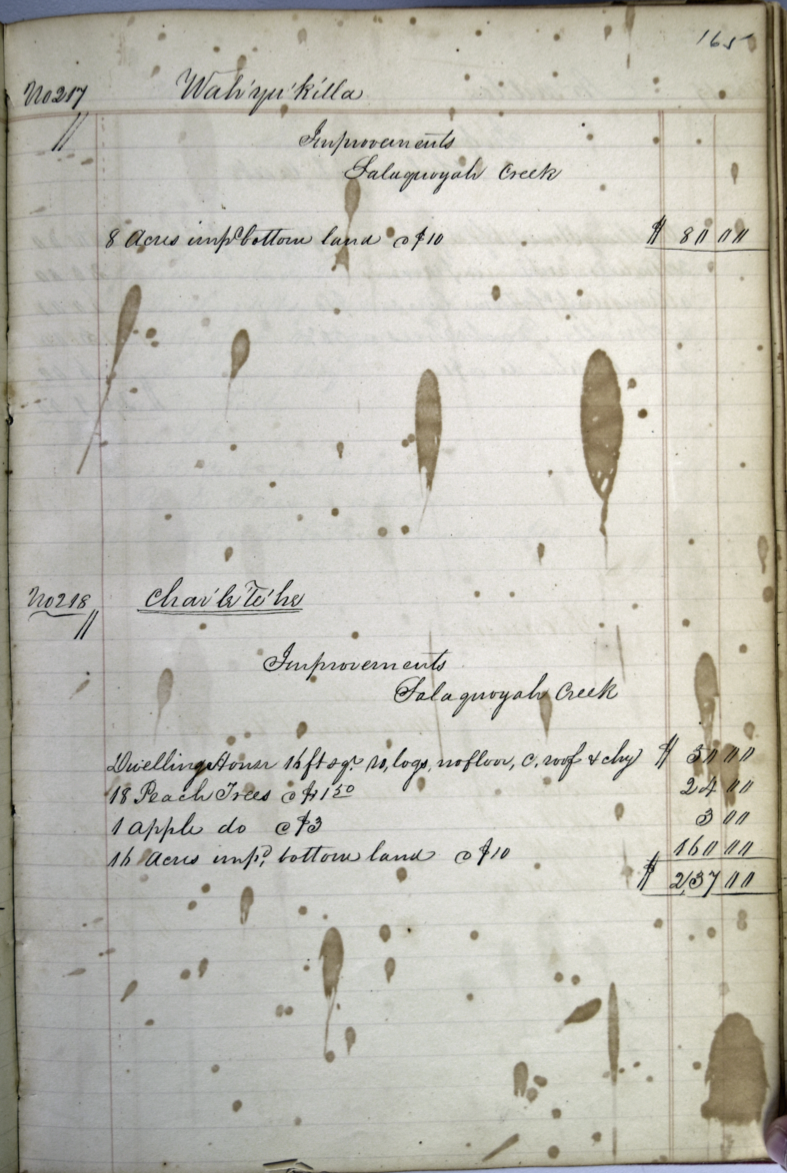 165
No 217 Wah'yu'killa
"
Improvements
Salaquoyah Creek
8 Acres impd bottom land @ $10 $ 80 00
No 218 Char'le Te'he
"
Improvements
Salaquoyah Creek
Dwelling House 16 ft sqr. R, logs, no floor, C, roof & chy $ 50 00
18 Peach Trees @ $1 50 24 00
1 apple do @ $3 3 00
16 Acres impd, bottom land @ $10 160 00
$ 237 00